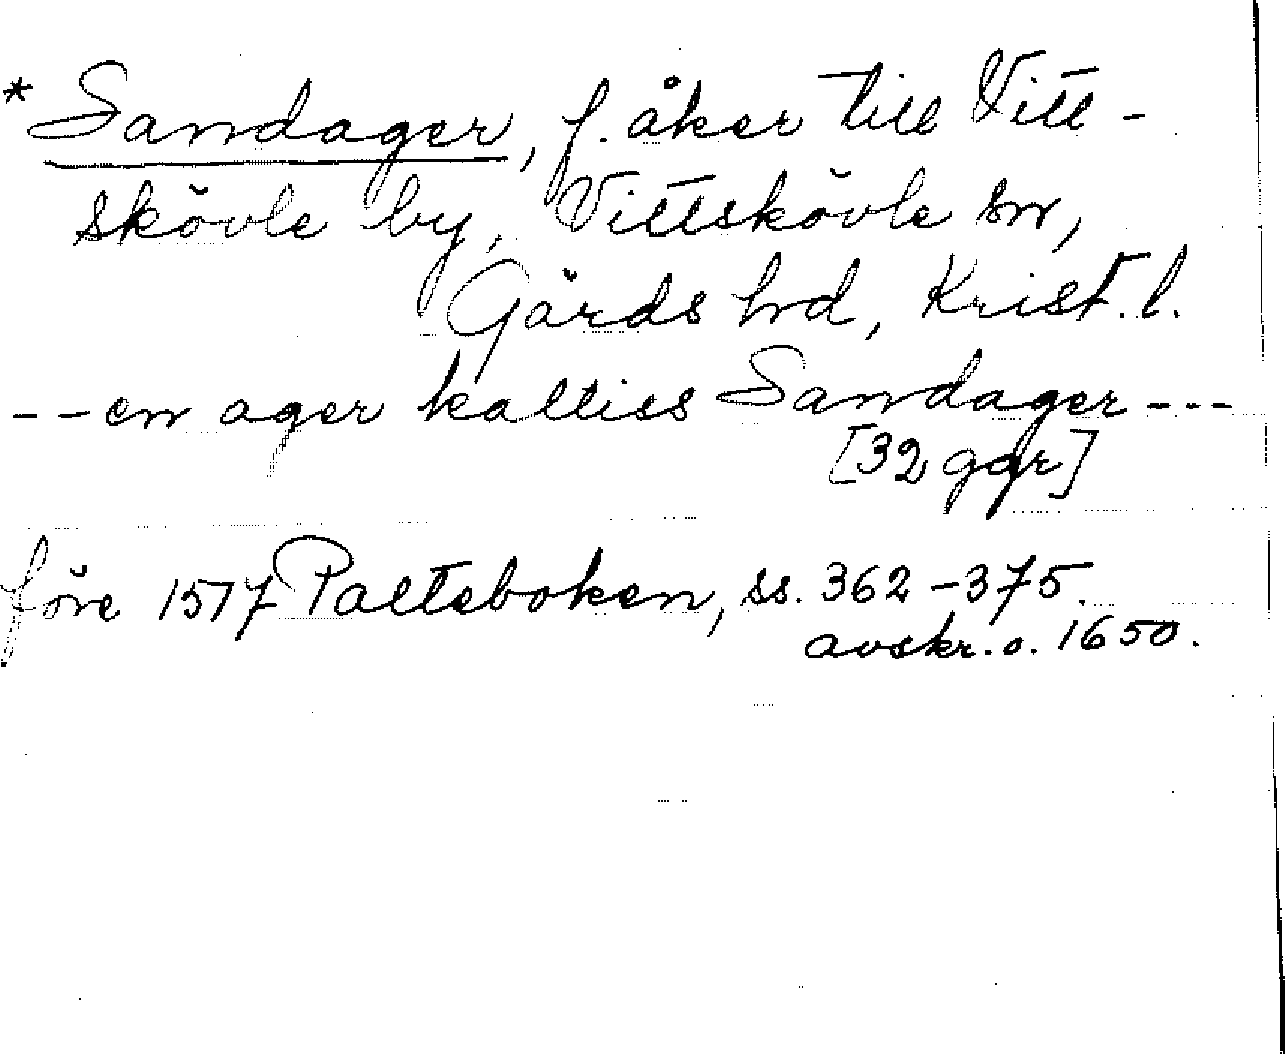 *Sandager, f. åker till Vitt-
skövle by, Vittskövle sn,
Gärds hd, Krist. l.
--en ager kalliss Sandager---
[32 ggr]
före 1577 Palteboken, ss. 362-375.
avskr. o. 1650.